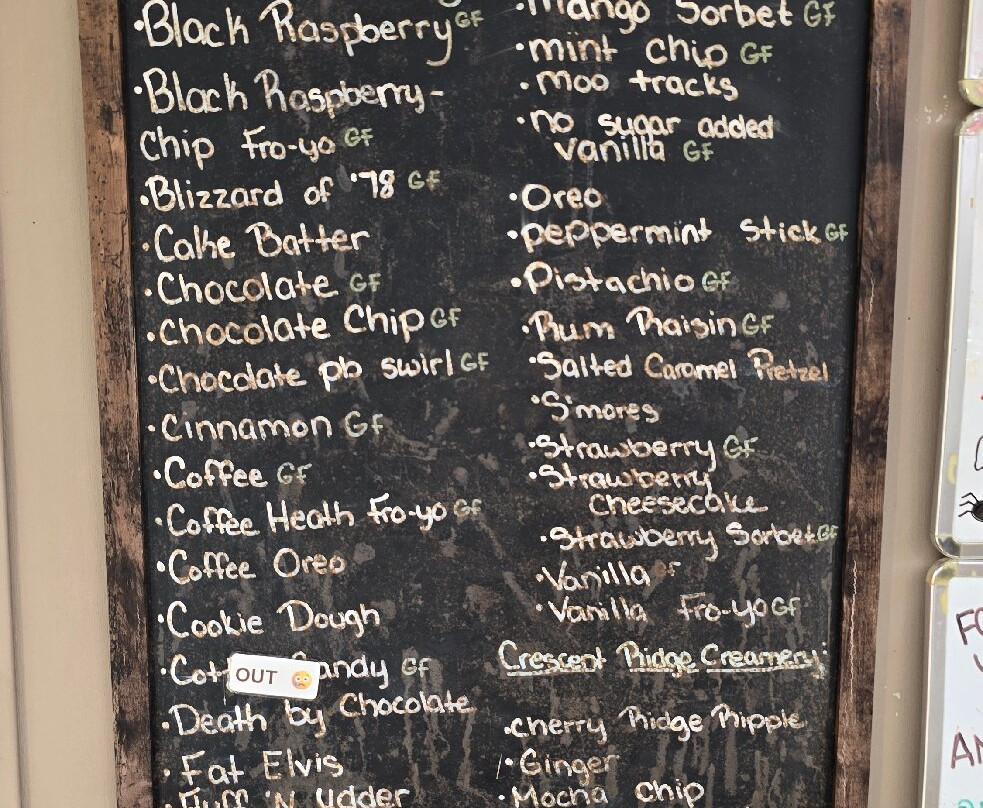 •Black Raspberry GF
•Black Raspberry-
Chip Fro-yo GF
•Blizzard of '78 GF
•Cake Batter
•Chocolate GF
•Chocolate Chip GF
•Chocolate pb swirl GF
•Cinnamon GF
•Coffee GF
•Coffee Heath Fro-yo GF
•Coffee Oreo
•Cookie Dough
•Cot andy GF
OUT
•Death by Chocolate
•Fat Elvis
•Fluff 'N Udder
•Mango Sorbet GF
•mint chip GF
•moo tracks
•no sugar added
vanilla GF
•Oreo
•peppermint stick GF
•Pistachio GF
•Rum Raisin GF
•Salted Caramel Pretzel
•S'mores
•Strawberry GF
•Strawberry
Cheesecake
•Strawberry Sorbet GF
•Vanilla GF
•Vanilla Fro-yo GF
Crescent Ridge Creamery:
•cherry Ridge Ripple
•Ginger
•Mocha chip